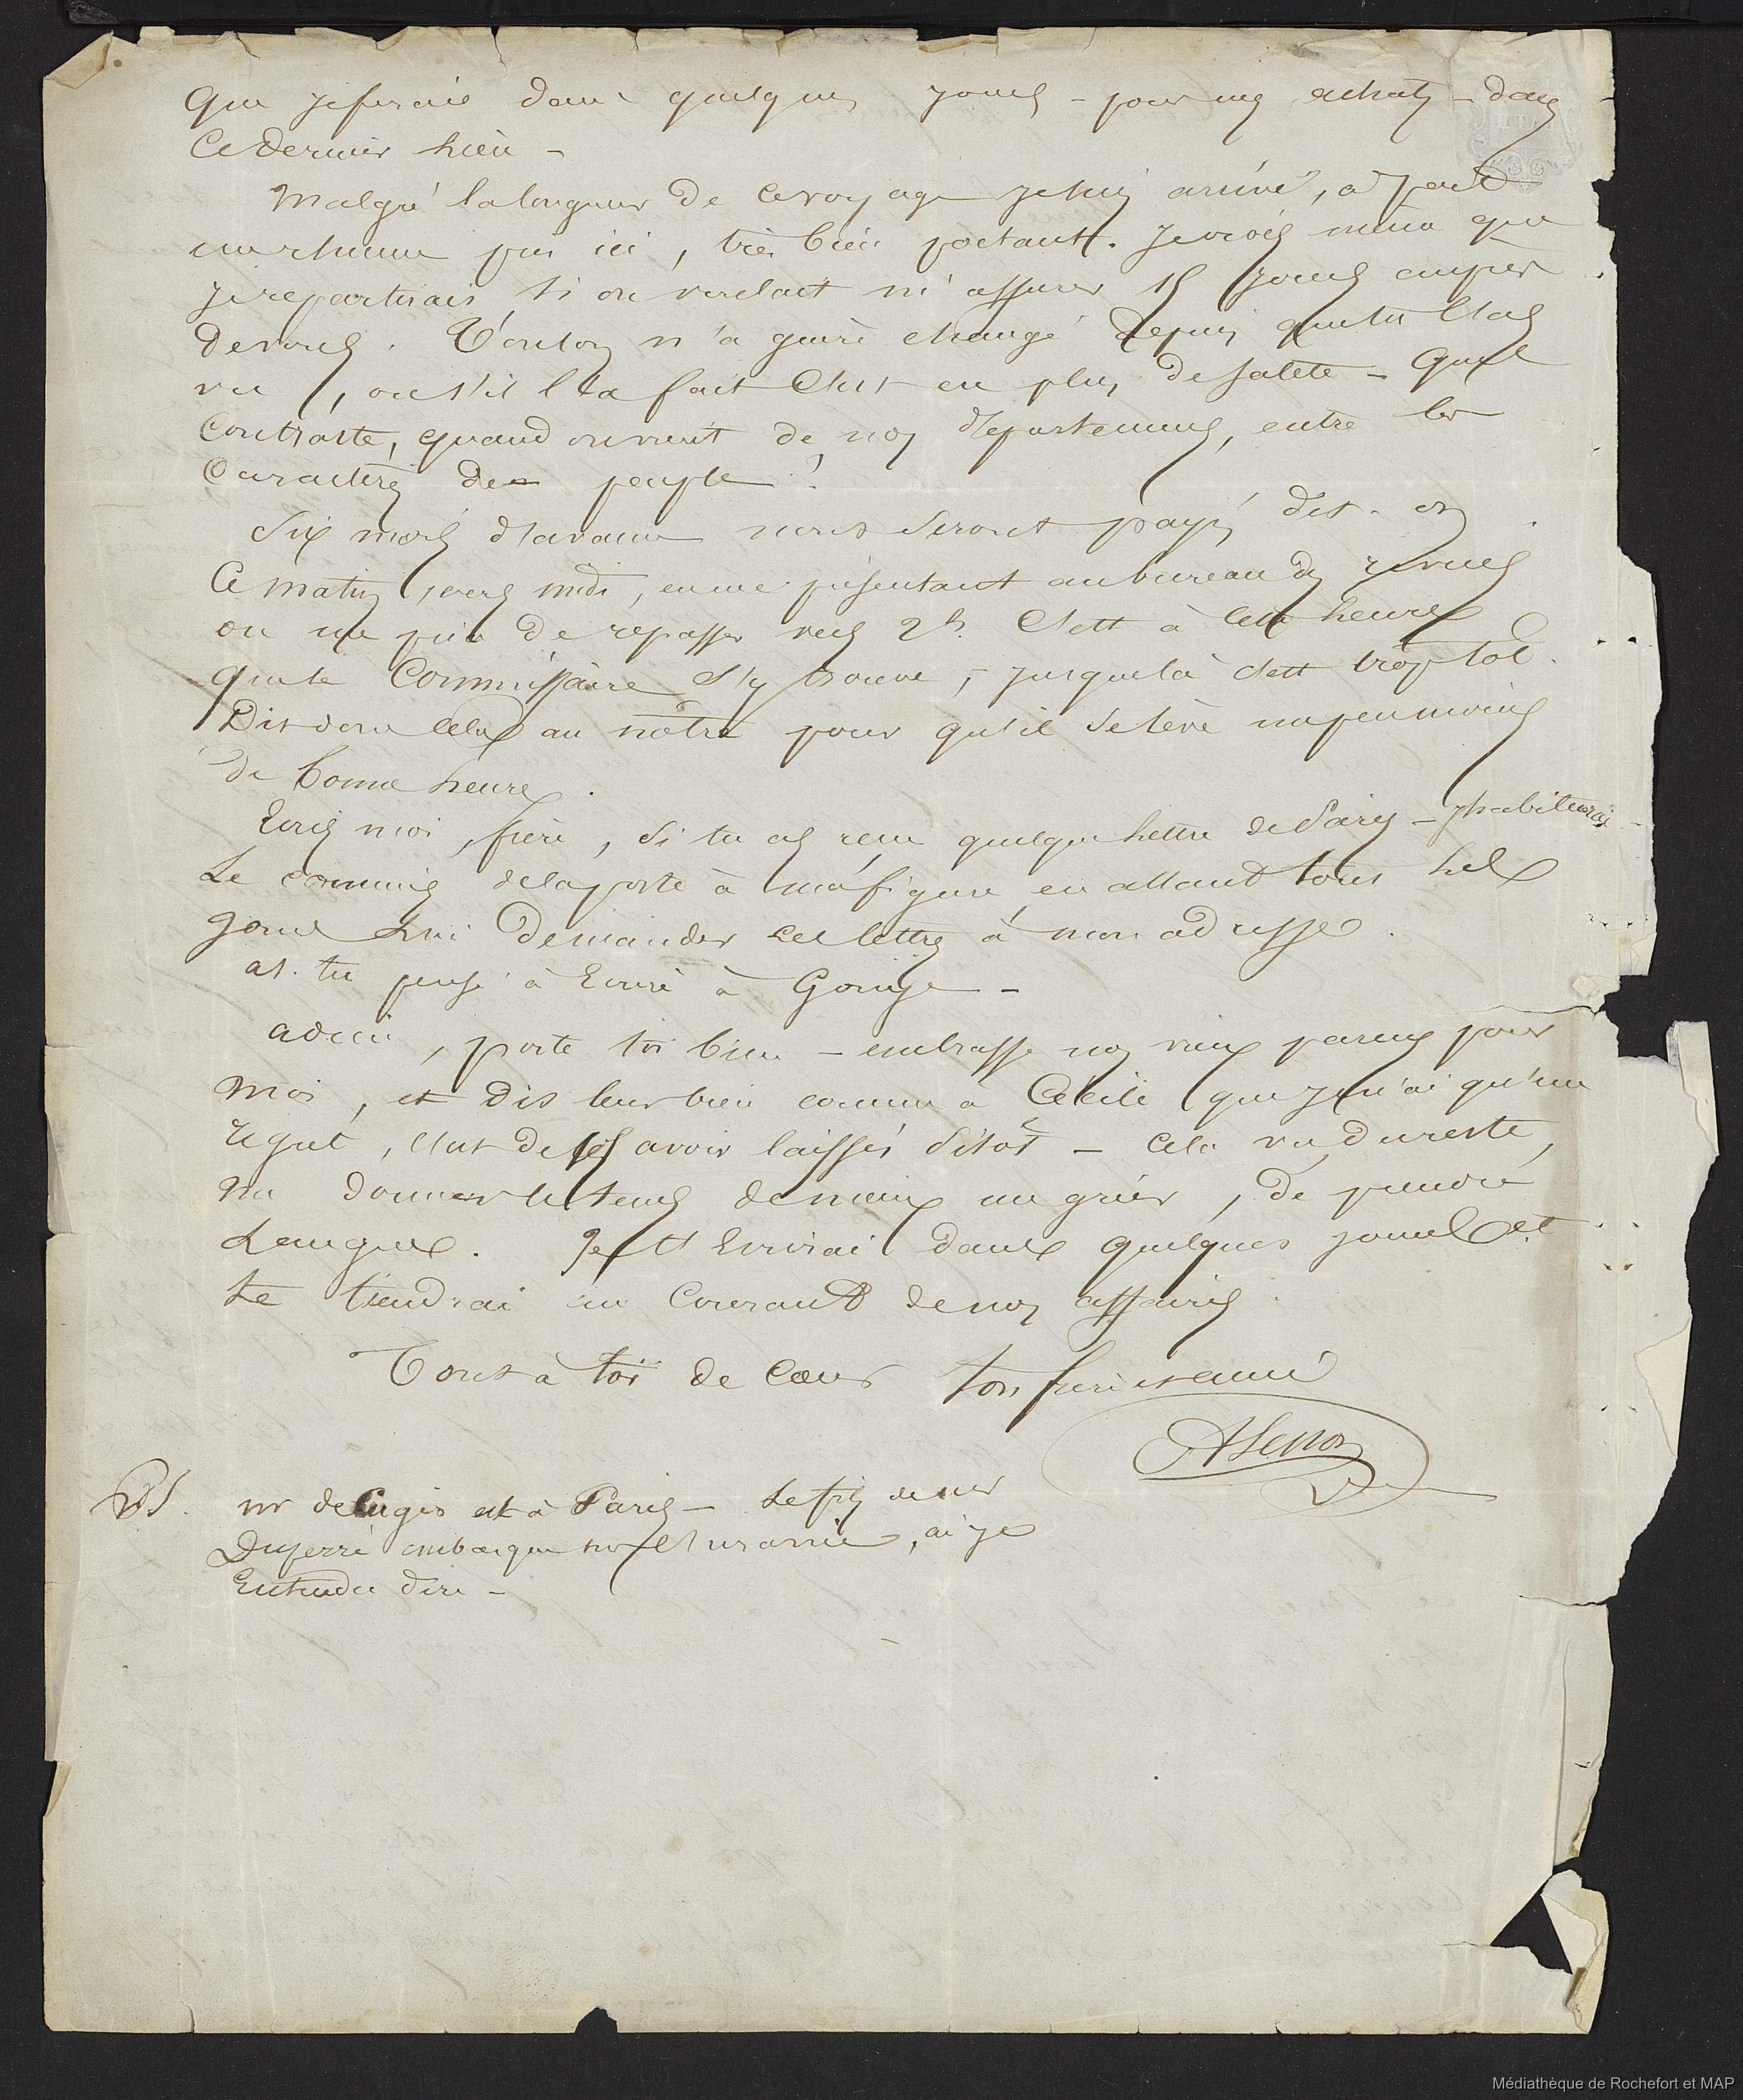 que je ferai dans quelques jours – pour mes achats – dans
ce dernier lieu –
Malgré la longueur de ce voyage je suis arrivé, à part
un rhume pris ici, très bien portant. Je crois même que
je repartirais si on voulait m'assurer 15 jours auprès
de vous. Toulon n'a guère changé depuis que tu l'as
vu, ou s'il l'a fait c'est en plus de saleté – quel
contraste, quand on vient de nos départements, entre les
caractères des peuples !
Six mois d'avance nous seront payés dit-on
Ce matin, vers midi, en me présentant au bureau des revues
on me prie de repasser vers 2h. C'est à cette heure
que le Commissaire s'y trouve, – jusque là c'est trop tôt.
Dis donc cela au nôtre pour qu'il se lève un peu moins
de bonne heure.
Ecris moi, frère, si tu as reçu quelque lettre de Paris – j'habituerai
le commis de la poste à ma figure en allant tous les
jours lui demander les lettres à mon adresse.
as-tu pensé à Ecrire à –
adieu, porte toi bien – embrasse nos vieux parens pour
moi, et dis leur bien comme à Cécile que je n'ai qu'un
regret, c'est de les avoir laissés sitôt – Cela va, du reste,
me donner le tems de mieux me , de prendre
Langue. Je t'Ecrirai dans quelques jours et
te tiendrai au Courant de nos affaires.
Tout à toi de cœur ton frère et ami
ALesson
PS. mr de est à Paris – Le fils de mr
Duperré embarque sur l'uranie, ai je
Entendu dire –
Médiathèque de Rochefort et MAP